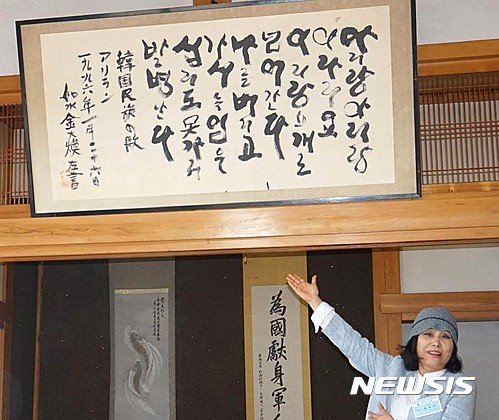 아리랑 아리랑
아라리요
아리랑 고개로
넘어간다
나를 버리고
가시는 임은
십리도 못가서
발병난다
韓国民族の歌
アリラン
一九九六年一月二十六日
如水 金大煥 左書
為國獻身軍
NEWSIS